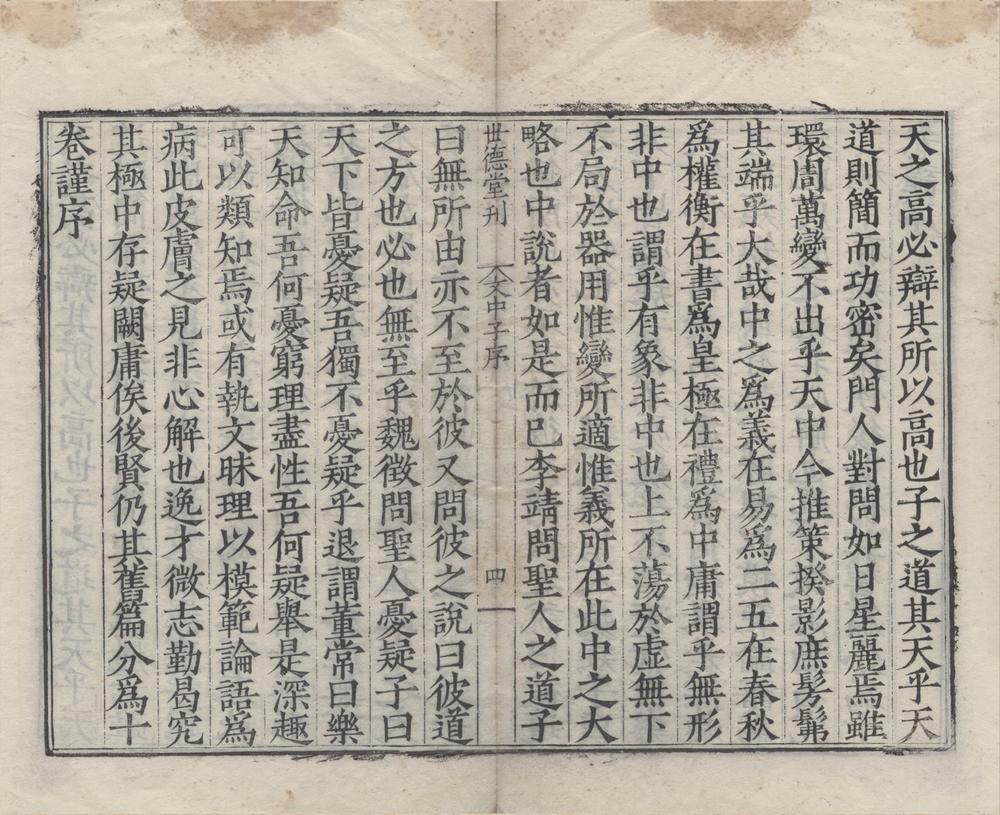 天之高必辯其所以高也子之道其天乎天
道則簡而功密矣門人對問如日星麗焉雖
環周萬變不出乎天中今推策揆影庶髣髴
其端乎大哉中之爲義在易爲二五在春秋
爲權衡在書爲皇極在禮爲中庸謂乎無形
非中也謂乎有象非中也上不蕩於虛無下
不局於器用惟變所適惟義所在此中之大
略也中說者如是而已李靖問聖人之道子
世德堂刊 文中子序 四
曰無所由亦不至於彼又問彼之說曰彼道
之方也必也無至乎魏徵問聖人憂疑子曰
天下皆憂疑吾獨不憂疑乎退謂董常曰樂
天知命吾何憂窮理盡性吾何疑舉是深趣
可以類知焉或有執文昧理以模範論語爲
病此皮膚之見非心解也逸才微志勤曷究
其極中存疑闕庸俟後賢仍其舊篇分爲十
卷謹序